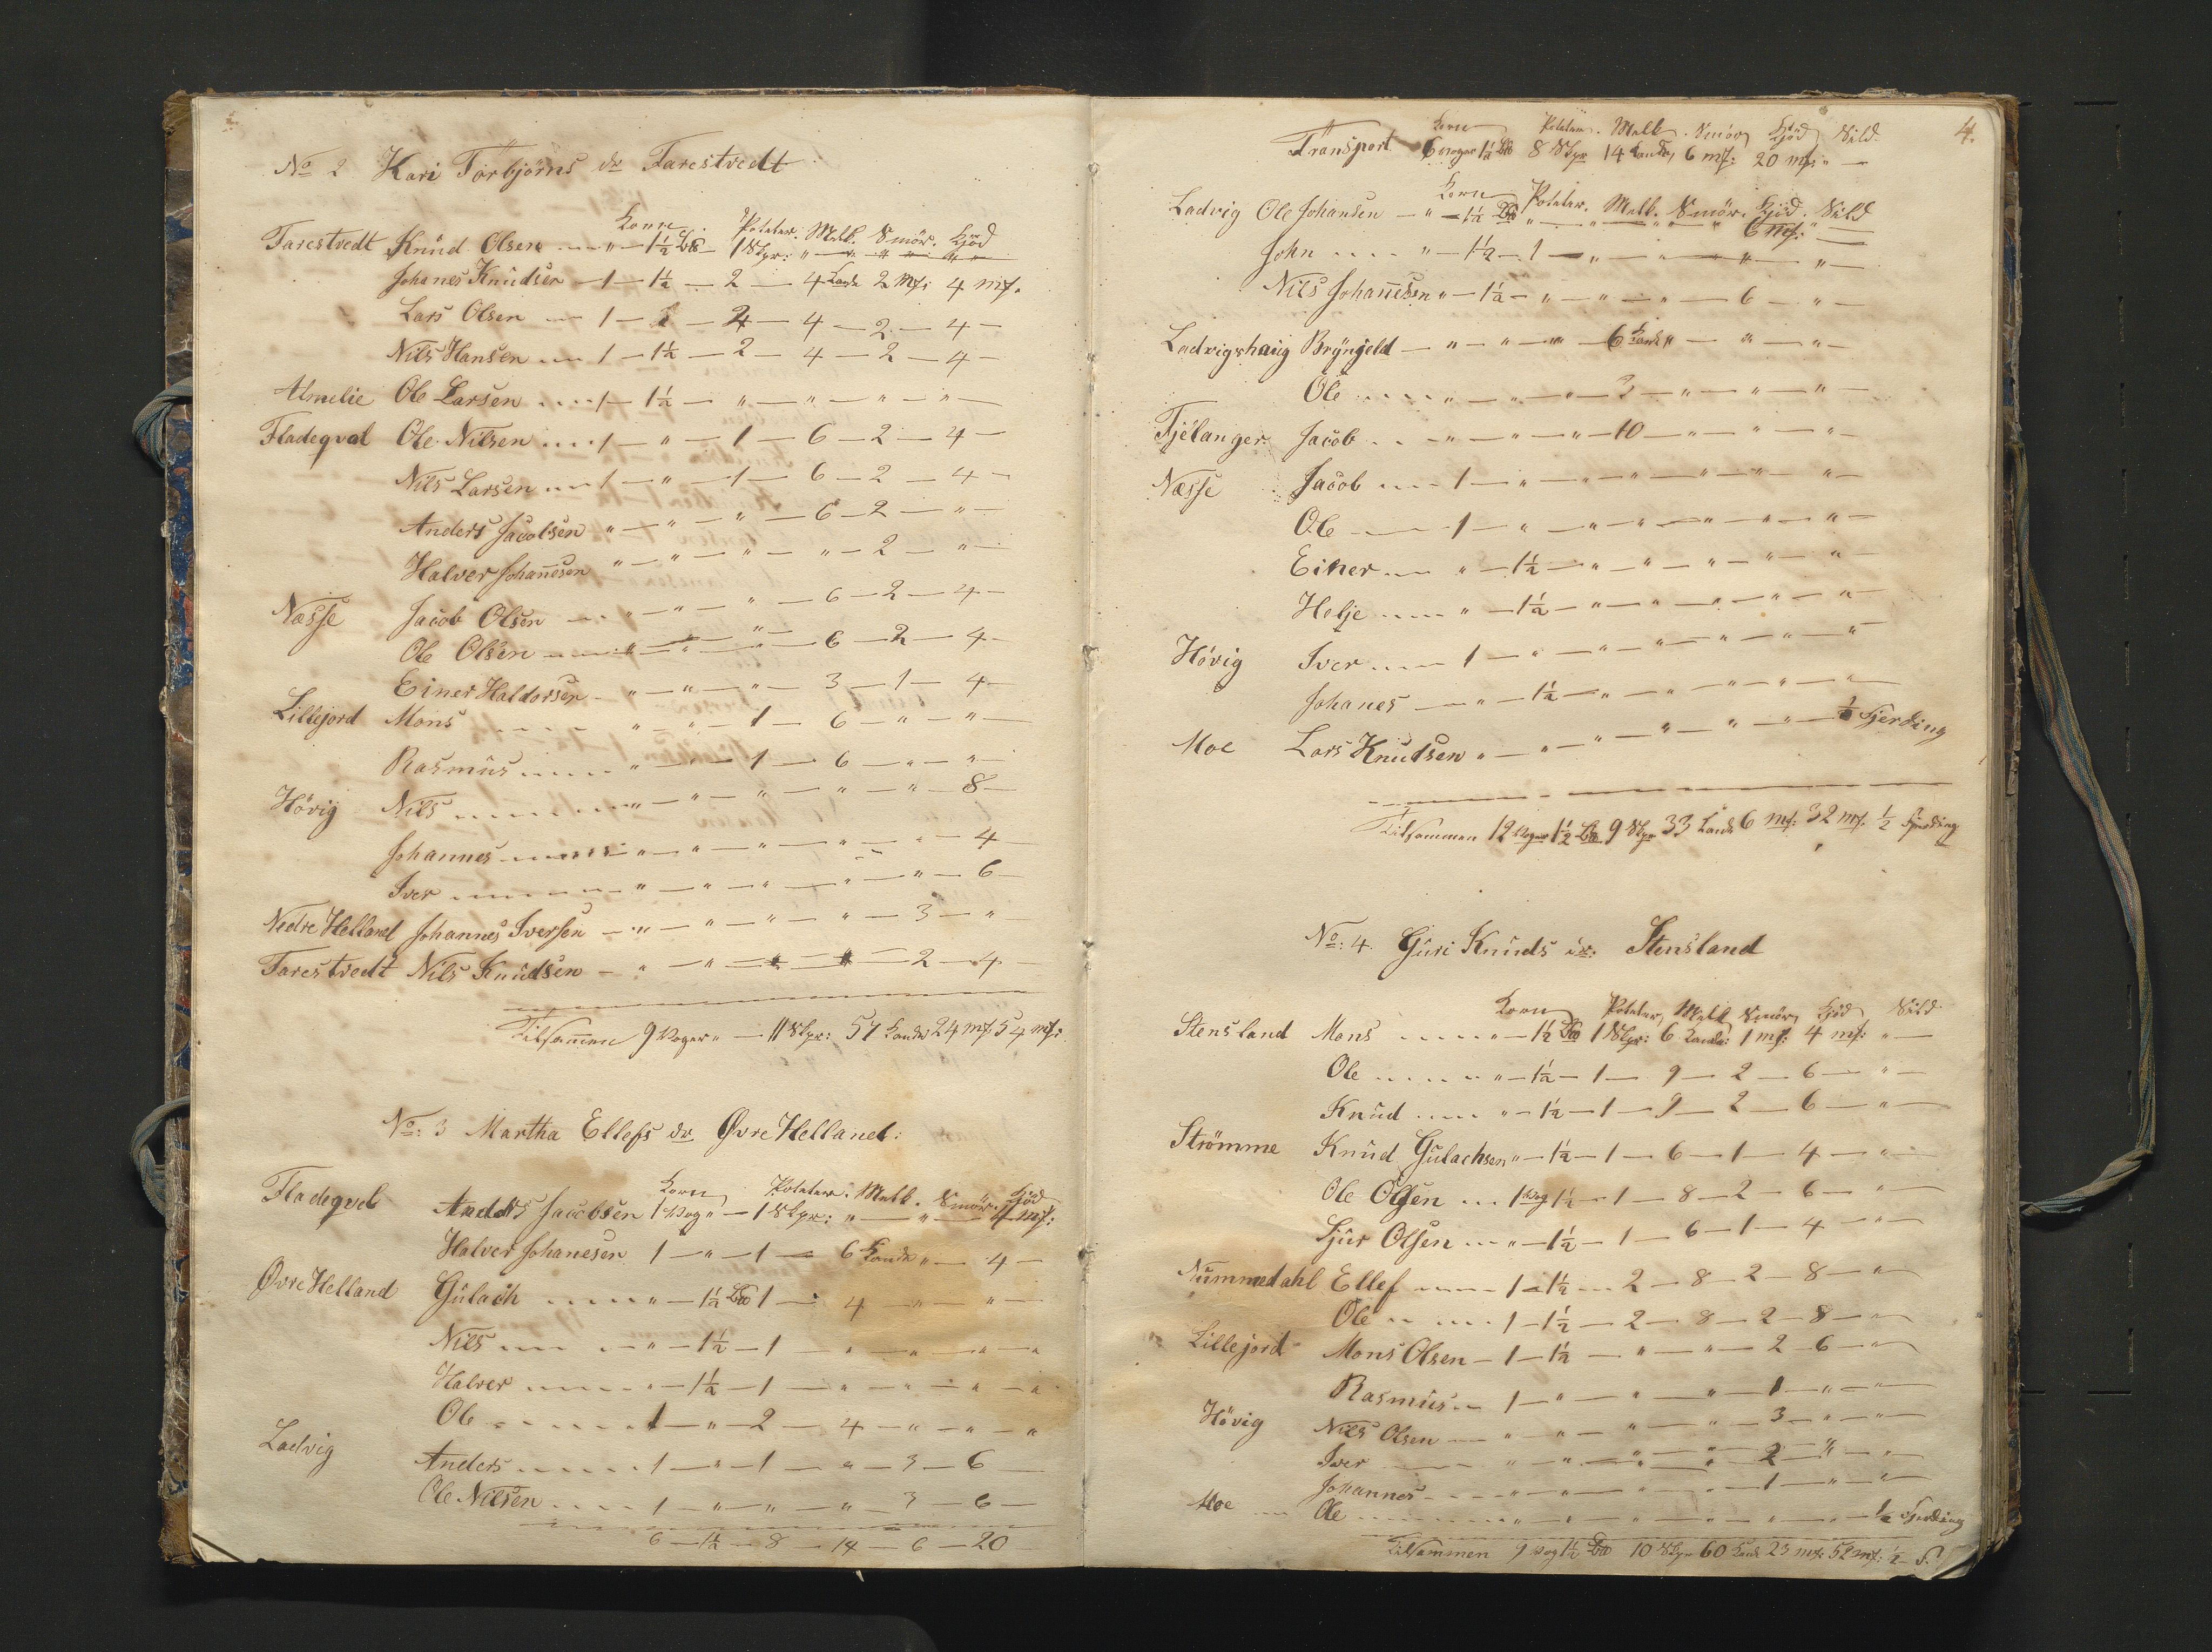 No 2 Kari Torbjörns dr Farestvedt
Korn. Poteter. Melk. Smör. Kjöd
Farestvedt Knud Olsen — " — 1½ Bd — 1 Skpr: " — " — " — "
Johanes Knudsen — 1 — 1½ — 2 — 4 Kande 2 mf: 4 mf.
Lars Olsen — 1 — 1 — 2 — 4 — 2 — 4 —
Nils Hansen — 1 — 1½ — 2 — 4 — 2 — 4 —
Almelie Ole Larsen — 1 — 1½ — " — " — " — " —
Fladeqval Ole Nilsen — 1 — " — 1 — 6 — 2 — 4 —
Nils Larsen — 1 — " — 1 — 6 — 2 — 4 —
Anders Jacobsen — " — " — " — 6 — 2 — " —
Halver Johannesen " — " — " — " — 2 — " —
Næsse Jacob Olsen — " — " — " — 6 — 2 — 4 —
Ole Olsen — " — " — " — 6 — 2 — 4 —
Einer Haldorsen — " — " — " — 3 — 1 — 4 —
Lillejord Mons — " — " — 1 — 6 — " — " —
Rasmus — " — " — 1 — 6 — " — "
Hövig Nils — " — " — " — " — " — 8 —
Johannes — " — " — " — " — " — 4 —
Iver — " — " — " — " — " — 6 —
Nedre Helland Johannes Iversen — " — " — " — " — 3 — " —
Farestvedt Nils Knudsen — " — " — " — " — 2 — 4 —
Tilsammen 9 Voger " — 11 Skpr: 57 Kande 24 mf: 54 mf:
No: 3 Martha Ellefs dr Øvre Helland:
Korn Poteter. Melk. Smör. Kjöd
Fladeqvel Anders Jacobsen 1 Vog " — 1 Skpr: " — " — 4 mf:
Halver Johanesen 1 — " — 1 — 6 Kande " — 4 —
Øvre Helland Gulach — " — 1½ Bd 1 — 4 — " — " —
Nils — " — 1½ — 1 — " — " — " — "
Halver — " — 1½ — 1 — " — " — " — "
Ole — 1 — " — 2 — 4 — " — " — "
Ladvig Anders — 1 — " — 1 — " — 3 — 6 —
Ole Nilsen — 1 — " — " — " — 3 — 6 —
6 — 1½ — 8 — 14 — 6 — 20
4.
Korn Poteter. Melk. Smör Kjöd Sild.
Transport 6 Voger 1½ Bd 8 Skpr 14 Kande, 6 mf: 20 mf: " —
Korn Poteter. Melk. Smör. Kjöd. Sild
Ladvig Ole Johansen — " — 1½ Bd " — " — " — 6 mf: " —
John — " — 1½ — 1 — " — " — " — " —
Nils Johannesen " — 1½ — " — " — " — 6 — " —
Ladvigshaug Brynjeld — " — " — " — 6 Kande " — " — " —
Ole — " — " — " — 3 — " — " — " —
Fjelanger Jacob — " — " — " — 10 — " — " — " —
Næsse Jacob — 1 — " — " — " — " — " — " —
Ole — 1 — " — " — " — " — " — " —
Einer — " — 1½ — " — " — " — " — " —
Helje — " — 1½ — " — " — " — " — " —
Hövig Iver — 1 — " — " — " — " — " — "
Johanes — " — 1½ — " — " — " — " — " —
Moe Lars Knudsen " — " — " — " — " — " — ½ Fjerding
Tilsammen 12 Voger 1½ Bd 9 Skpr 33 Kande 6 mf: 32 mf. ½ Fjerding
No: 4. Guri Knuds dr: Stensland
Korn Poteter, Melk Smör, Kjöd Sild
Stensland Mons — " — 1½ Bd 1 Skpr: 6 Kande: 1 mf: 4 mf: " —
Ole — " — 1½ — 1 — 9 — 2 — 6 — " —
Knud — " — 1½ — 1 — 9 — 2 — 6 — " —
Strömme Knud Gulachsen " — 1½ — 1 — 6 — 1 — 4 — " —
Ole Olsen — 1 Vog 1½ — 1 — 8 — 2 — 6 — " —
Sjur Olsen — " — 1½ — 1 — 6 — 1 — 4 — " —
Nummedahl Ellef — 1 — 1½ — 2 — 8 — 2 — 8 — " —
Ole — 1 — 1½ — 2 — 8 — 2 — 8 — " —
Lillejord Mons Olsen — 1 — 1½ — " — " — 2 — 6 — " —
Rasmus — 1 — " — " — " — 1 — " — "
Hövig Nils Olsen — " — " — " — " — 3 — " — "
Iver — " — " — " — " — 2 — " — "
Johannes — " — " — " — " — 1 — " — "
Moe Ole — " — " — " — " — " — " — ½ Fjerding
Tilsammen 9 Vog 1½ Bd 10 Skpr 60 Kande 23 mf: 52 mf: ½ F.